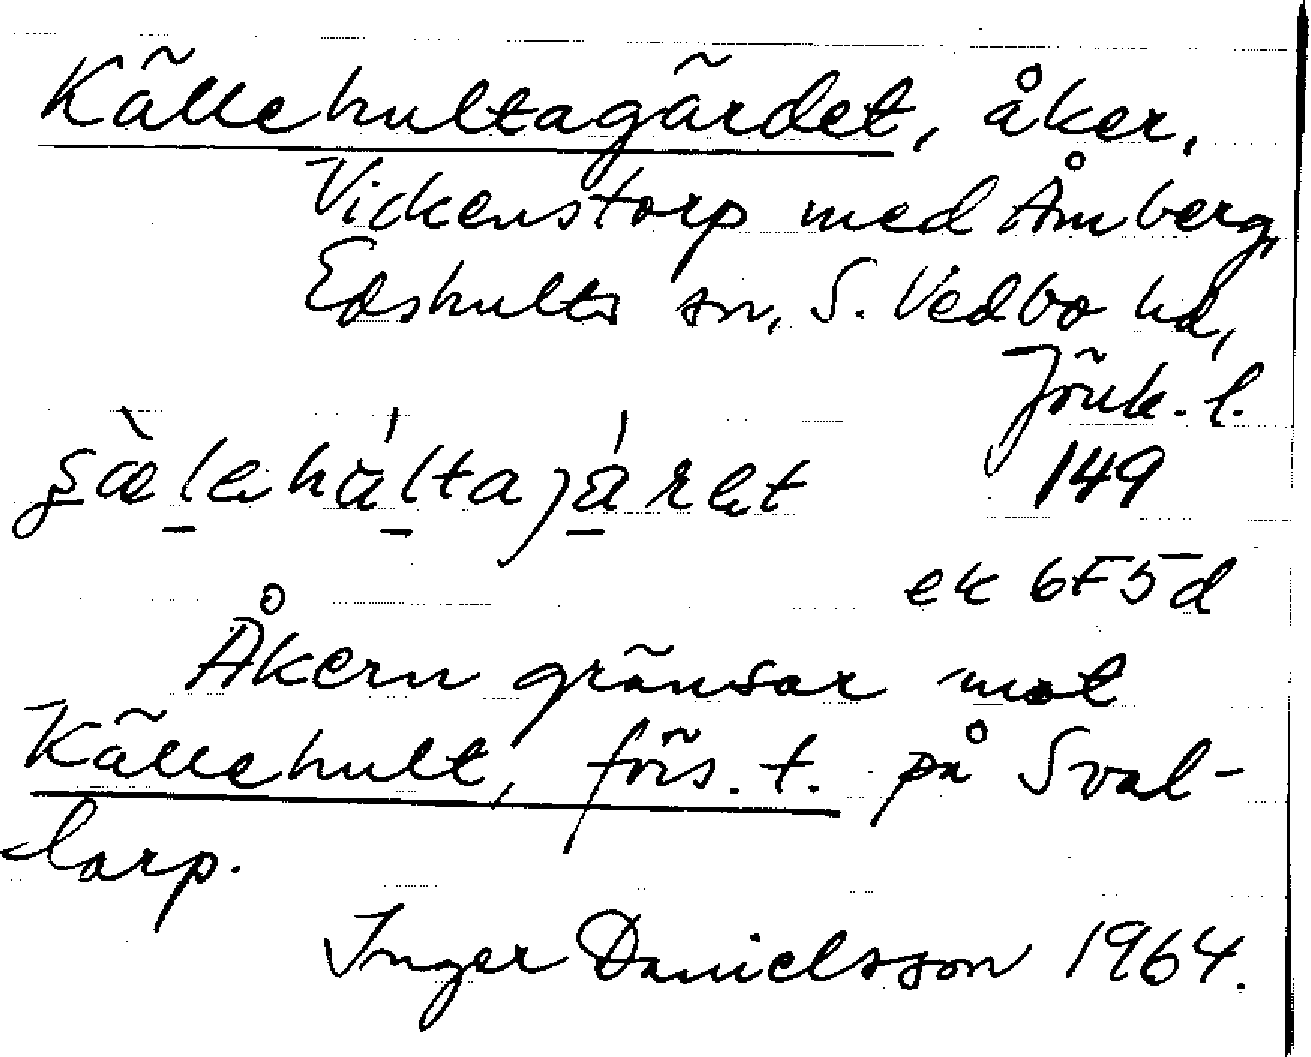 Källehultagärdet, åker,
Vickenstorp med Åmberg,
Edshults sn, S. Vedbo hd,
Jönk. l.
149
ek 6F5d
Åkern gränsar mot
Källehult, förs. t. på Sval-
larp.
Inger Danielsson 1964.